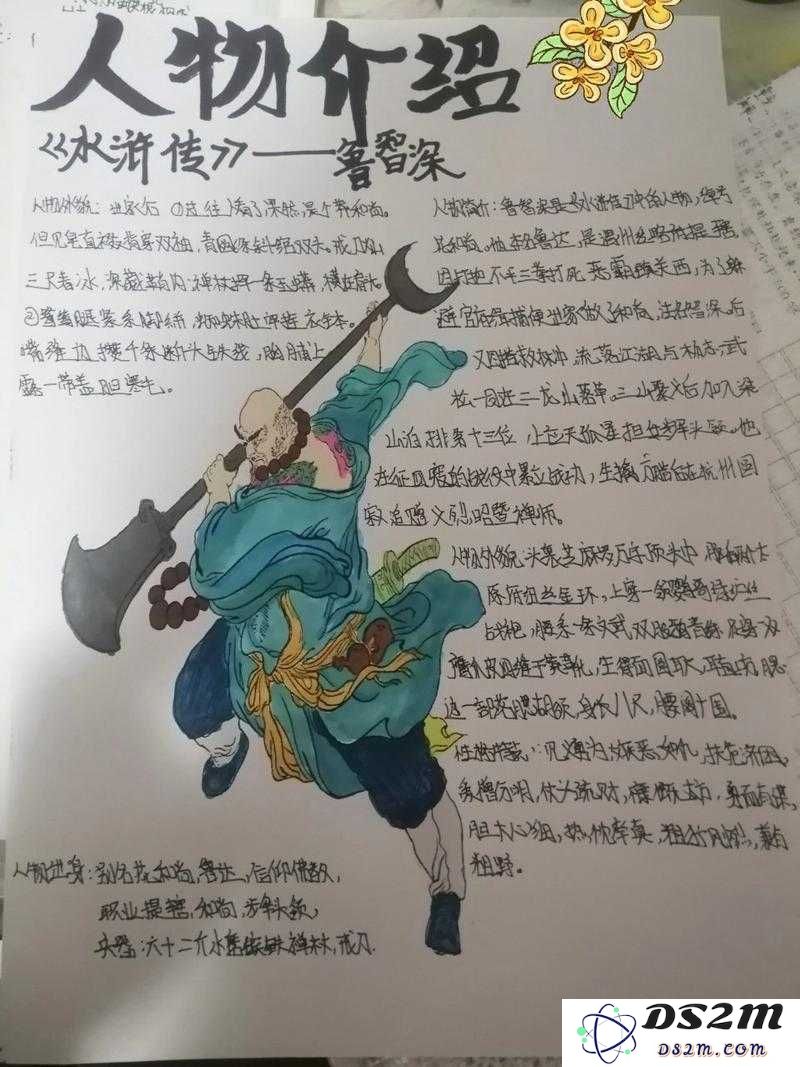 人物介绍
《水浒传》——鲁智深
人物外貌：出家后
但见皂直裰背穿双袖，青圆绦斜绾双头。戒刀
三尺春冰，深藏鞘内；禅杖挥一条玉蟒，横在肩头。
嘴缝边攒千条断头铁线，胸脯上
露一带盖胆寒毛。
人物简介：鲁智深是《水浒传》中的人物，绰号
花和尚。他本名鲁达，是渭州经略府提辖，
因打抱不平三拳打死恶霸镇关西，为了躲
避官府缉捕便出家做了和尚，法名智深。后
又因搭救林冲，流落江湖与杨志、武
松一同在二龙山落草。三山聚义后加入梁
山泊，排第十三位，上应天孤星，担任步军头领。他
在征四寇的战役中屡立战功，生擒方腊后在杭州圆
寂，追赠义烈昭暨禅师。
人物外貌：头裹芝麻罗万字顶头巾，脑后两个太
原府纽丝金环，上穿一领鹦哥绿纻丝
战袍，腰系一条文武双股鸦青绦，足穿一双
鹰爪皮四缝干黄靴，生得面圆耳大，鼻直口方，腮
边一部貉腮胡须，身长八尺，腰阔十围。
性格特征：见义勇为，嫉恶如仇，扶危济困，
爱憎分明，仗义疏财，慷慨大方，勇而有谋，
胆大心细，热忱率真，粗犷
粗野。
人物出身：别名花和尚，鲁达，信仰佛教，
职业提辖，和尚，步军头领，
兵器：六十二斤水磨镔铁禅杖，戒刀
DS2M
DS2m.com